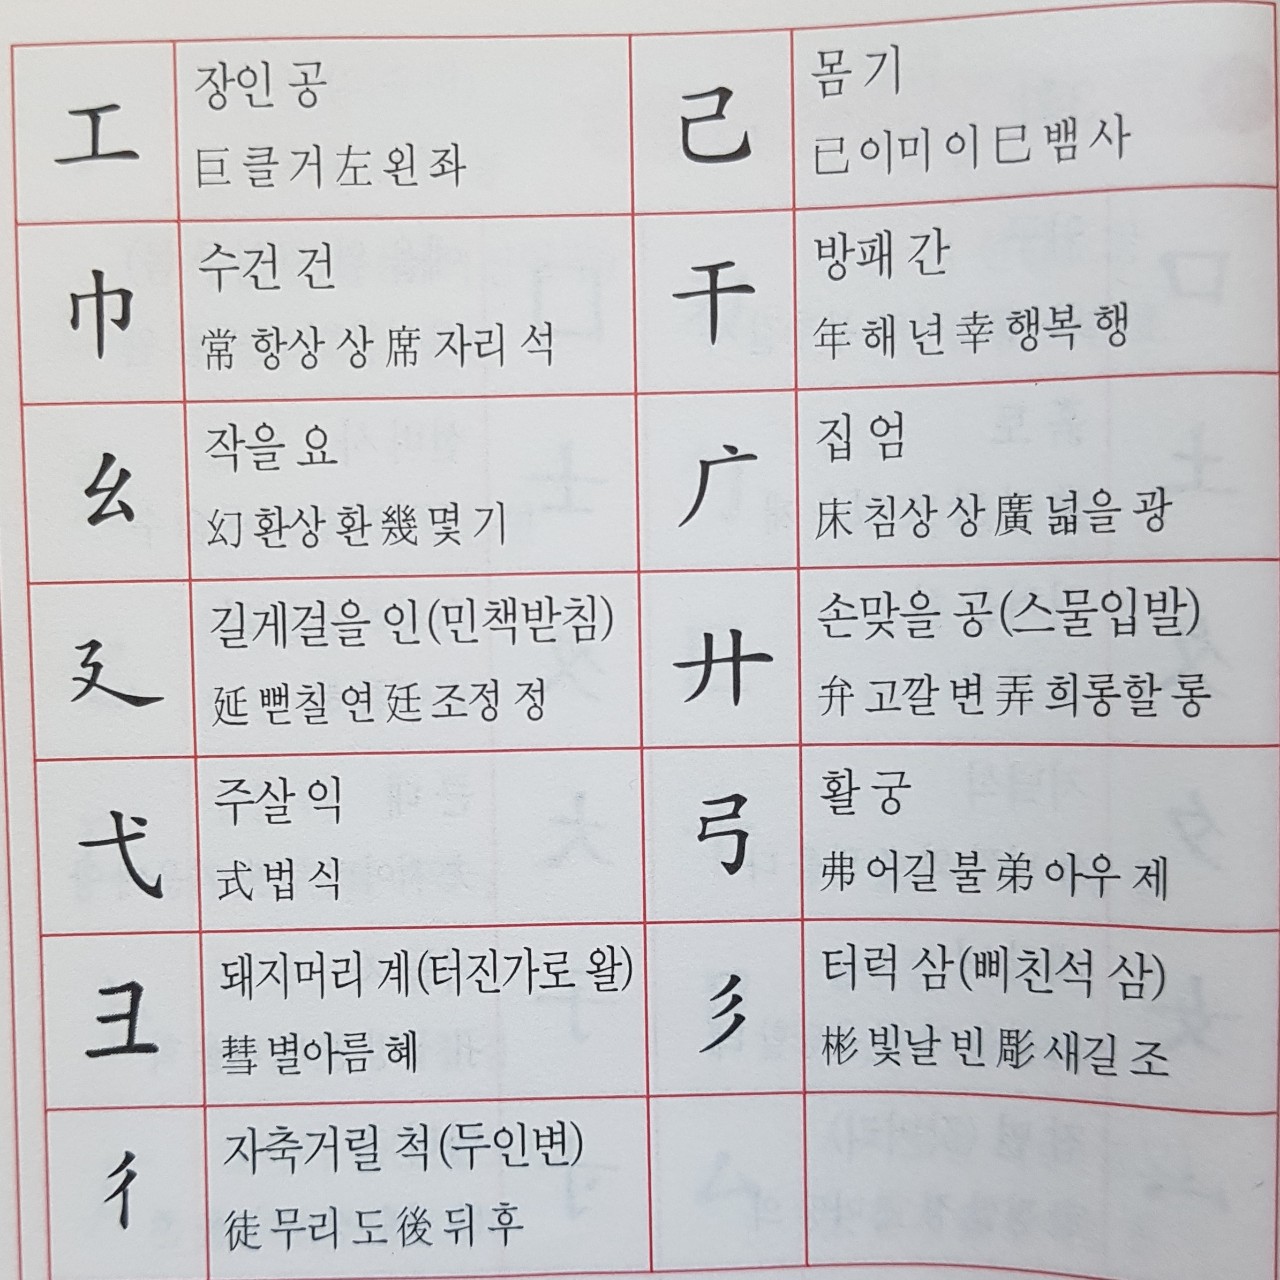 工
장인 공
巨 클 거 左 왼 좌
己
몸 기
已 이미 이 巳 뱀 사
巾
수건 건
常 항상 상 席 자리 석
干
방패 간
年 해 년 幸 행복 행
幺
작을 요
幻 환상 환 幾 몇 기
广
집 엄
床 침상 상 廣 넓을 광
廴
길게걸을 인(민책받침)
延 뻗칠 연 廷 조정 정
廾
손맞을 공(스물입발)
弁 고깔 변 弄 희롱할 롱
弋
주살 익
式 법 식
弓
활 궁
弗 어길 불 弟 아우 제
彐
돼지머리 계(터진가로 왈)
彗 별아름 혜
彡
터럭 삼(삐친석 삼)
彬 빛날 빈 彫 새길 조
彳
자축거릴 척(두인변)
徒 무리 도 後 뒤 후